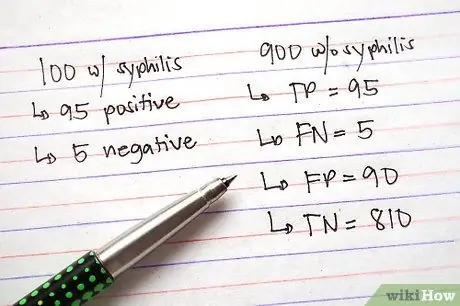 100 w/ syphilis
↳ 95 positive
↳ 5 negative
900 w/o syphilis
↳ TP = 95
↳ FN = 5
↳ FP = 90
↳ TN = 810
wikiHow